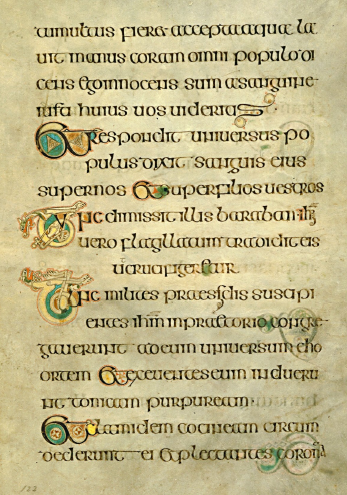 tumultus fieret accepta aqua la
uit manus coram omni populo di
cens ego innocens sum a sanguine
iusti huius uos uideritis
Et respondit uniuersus po
pulus dixit sanguis eius
super nos Et super filios uestros
Tunc dimissit illis baraban ihm
uero flagillatum tradidit eis
ut crucifigeretur
Tunc milites praessidis suscipi
entes ihm in praetorio congre
gauerunt ad eum uniuersum cho
ortem Et exeuentes eum indueru
nt tonicam purpuream
Et clamidem coccineam circum
dederunt ei Et plectantes corona